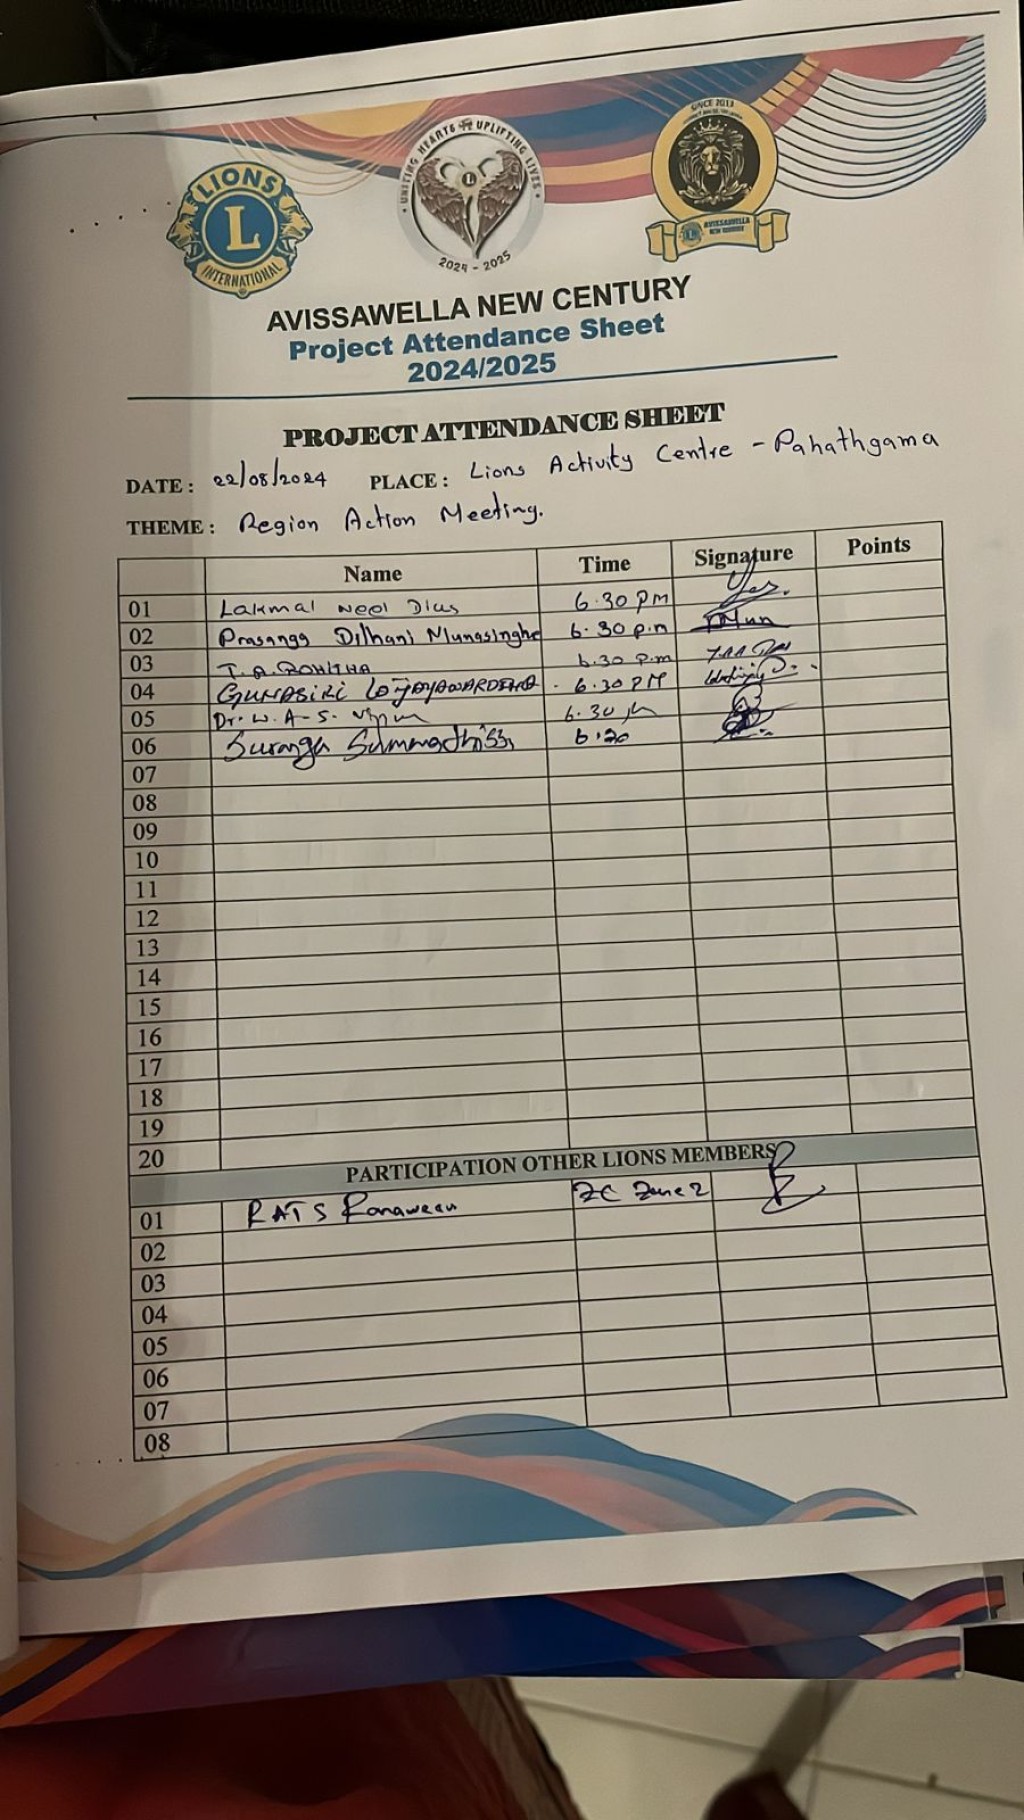 LIONS
L
INTERNATIONAL
UNITING HEARTS UPLIFTING LIVES
2024 - 2025
SINCE 2013
AVISSAWELLA
NEW CENTURY
AVISSAWELLA NEW CENTURY
Project Attendance Sheet
2024/2025
PROJECT ATTENDANCE SHEET
DATE : 22/08/2024 PLACE : Lions Activity Centre - Pahathgama
THEME : Region Action Meeting.
Name Time Signature Points
01 Lakmal Neel Dias 6.30 PM
02 Prasanga Dilhani Munasinghe 6.30 p.m
03 T.A. ROHITHA 6.30 P.m
04 GUNASIRI WIJAYAWARDENA 6.30 PM
05 Dr. W. A. S. 6.30
06 Suranga 6.30
07
08
09
10
11
12
13
14
15
16
17
18
19
20
PARTICIPATION OTHER LIONS MEMBERS
01 RATS Ranaweera ZC Zone 2
02
03
04
05
06
07
08